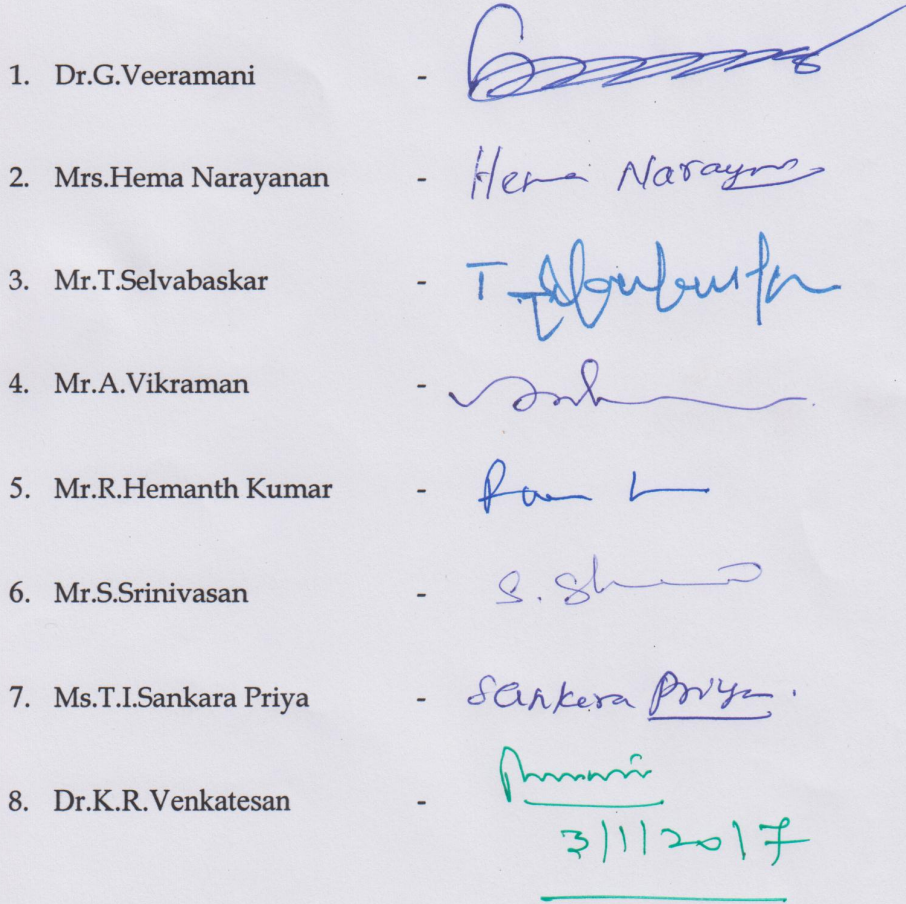 1. Dr.G.Veeramani -
2. Mrs.Hema Narayanan - Hema Narayanan
3. Mr.T.Selvabaskar - T
4. Mr.A.Vikraman -
5. Mr.R.Hemanth Kumar -
6. Mr.S.Srinivasan - S.
7. Ms.T.I.Sankara Priya - Sankara Priya.
8. Dr.K.R.Venkatesan -
3/1/2017